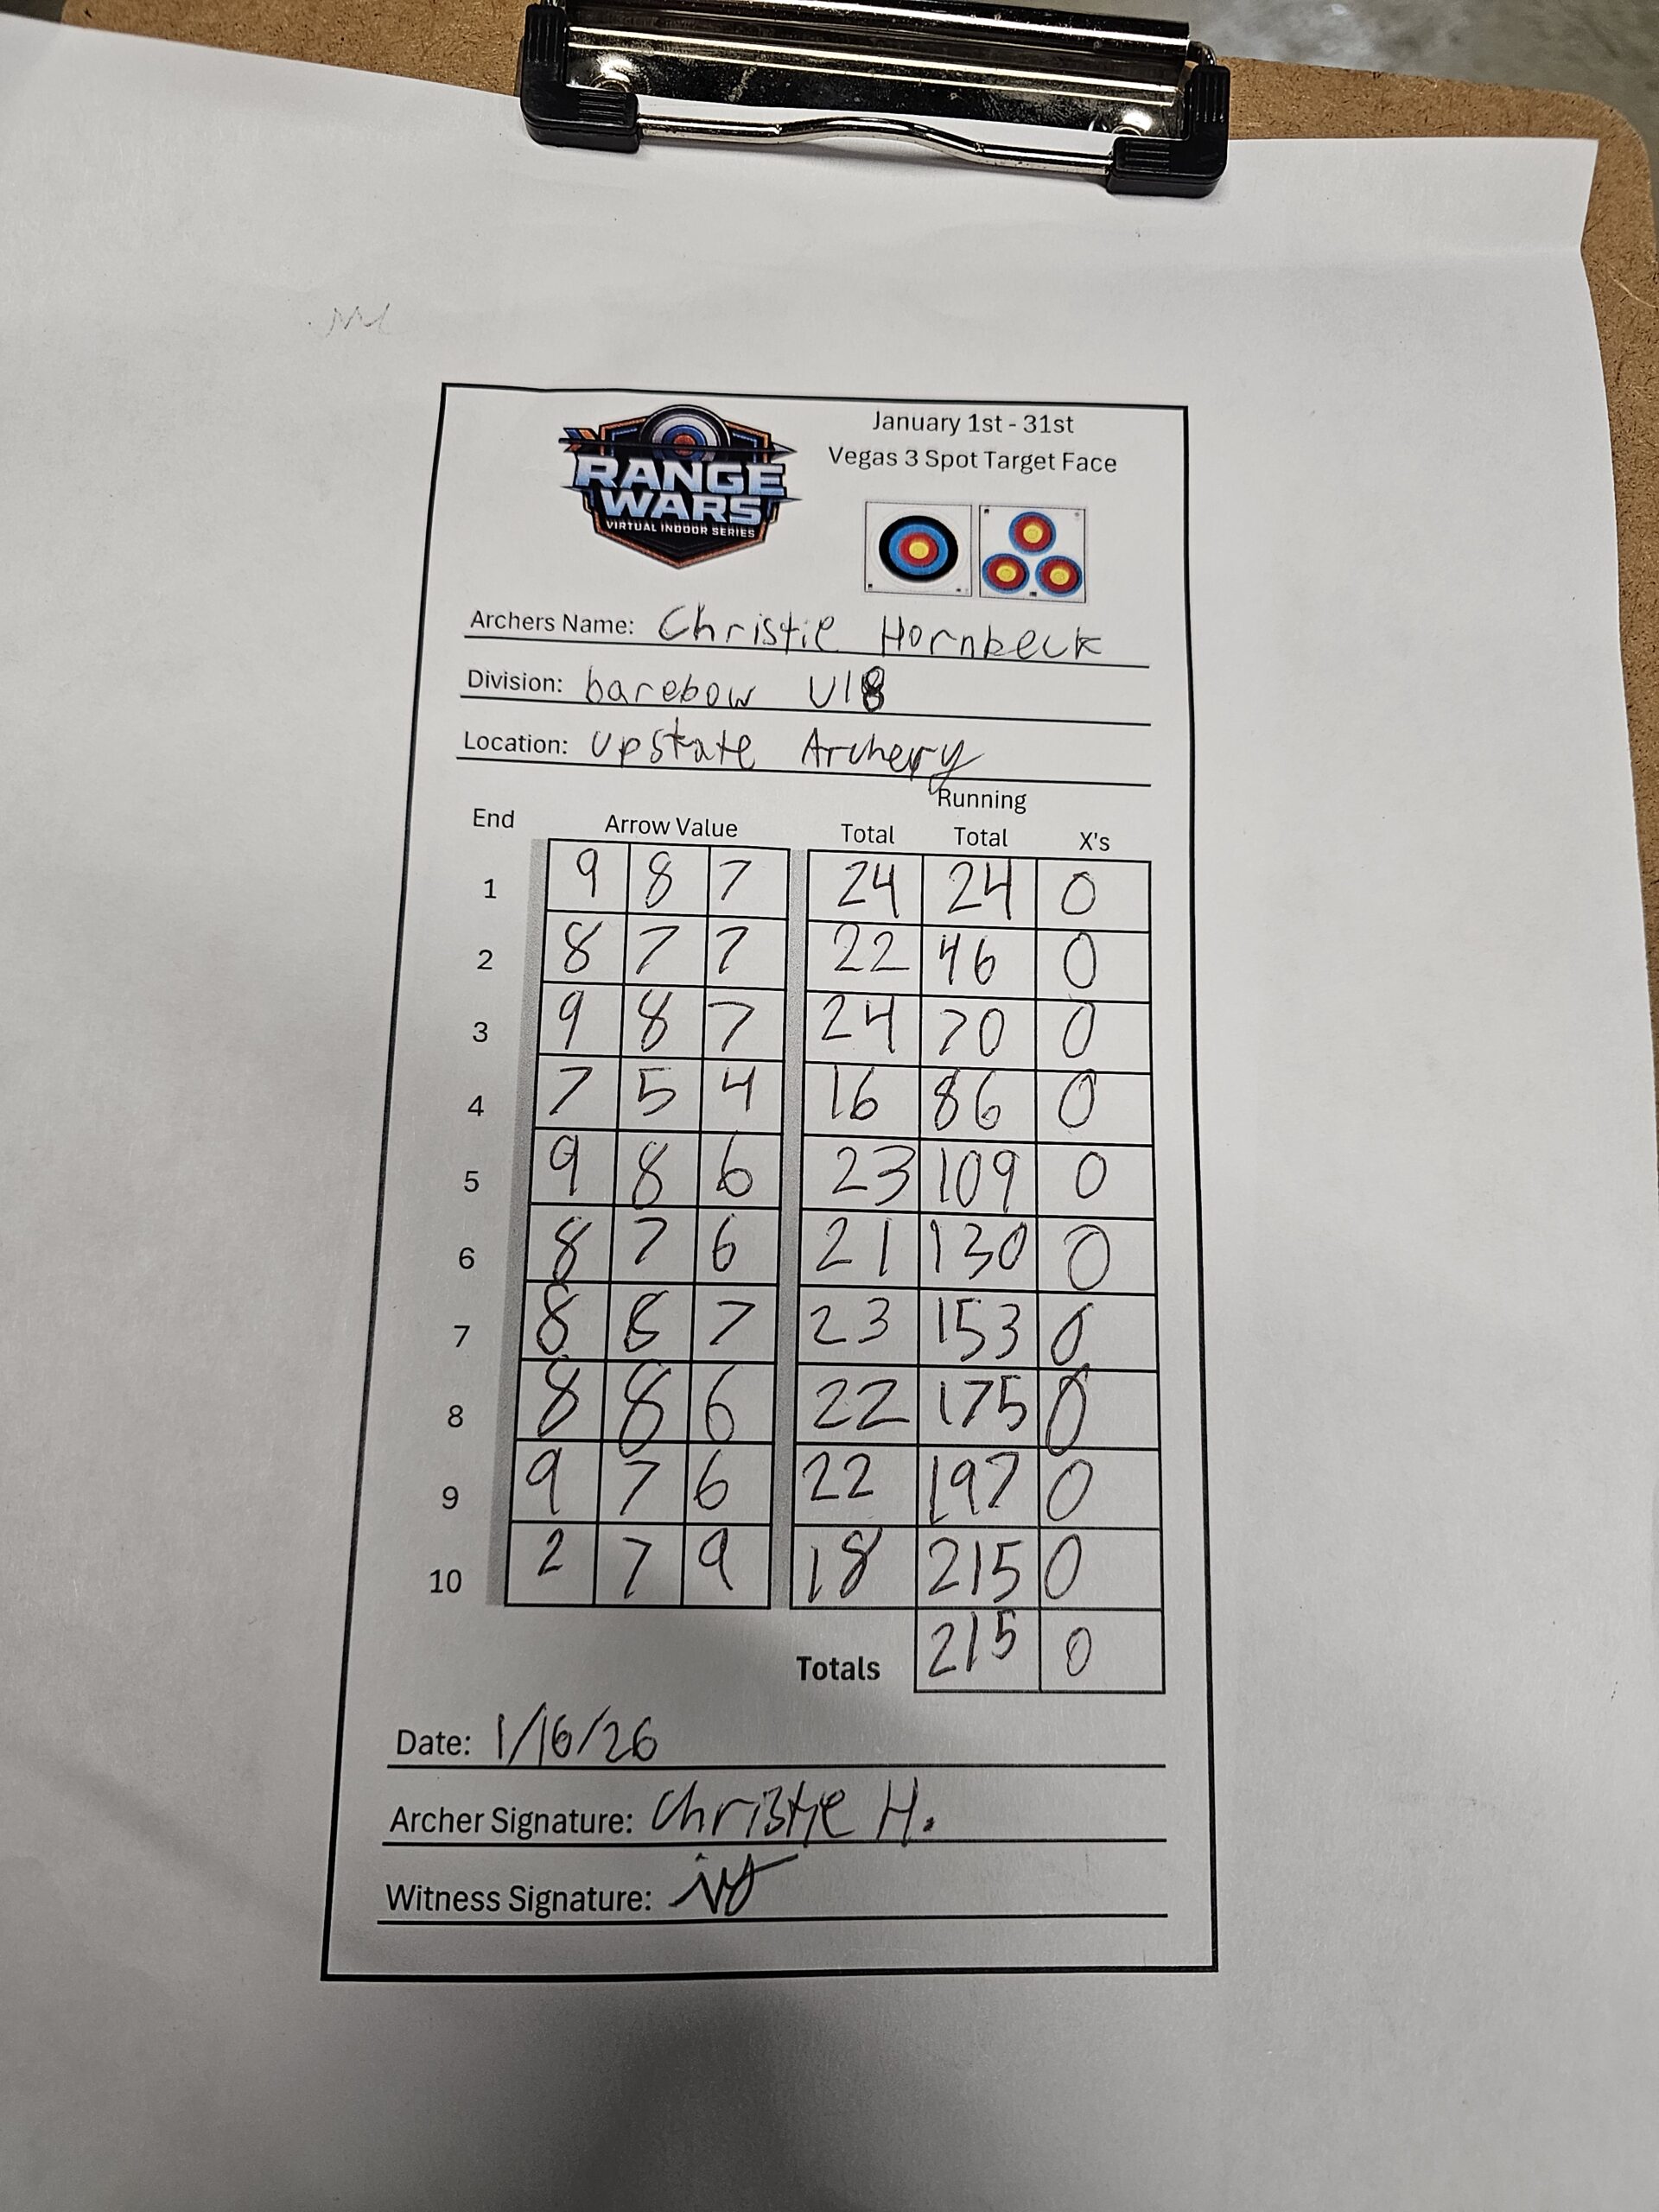 RANGE
WARS
VIRTUAL INDOOR SERIES
January 1st - 31st
Vegas 3 Spot Target Face
Archers Name: Christie Hornbeck
Division: barebow U18
Location: Upstate Archery
End Arrow Value Total Running Total X's
1 9 8 7 24 24 0
2 8 7 7 22 46 0
3 9 8 7 24 70 0
4 7 5 4 16 86 0
5 9 8 6 23 109 0
6 8 7 6 21 130 0
7 8 8 7 23 153 0
8 8 8 6 22 175 0
9 9 7 6 22 197 0
10 2 7 9 18 215 0
Totals 215 0
Date: 1/16/26
Archer Signature: Christie H.
Witness Signature: